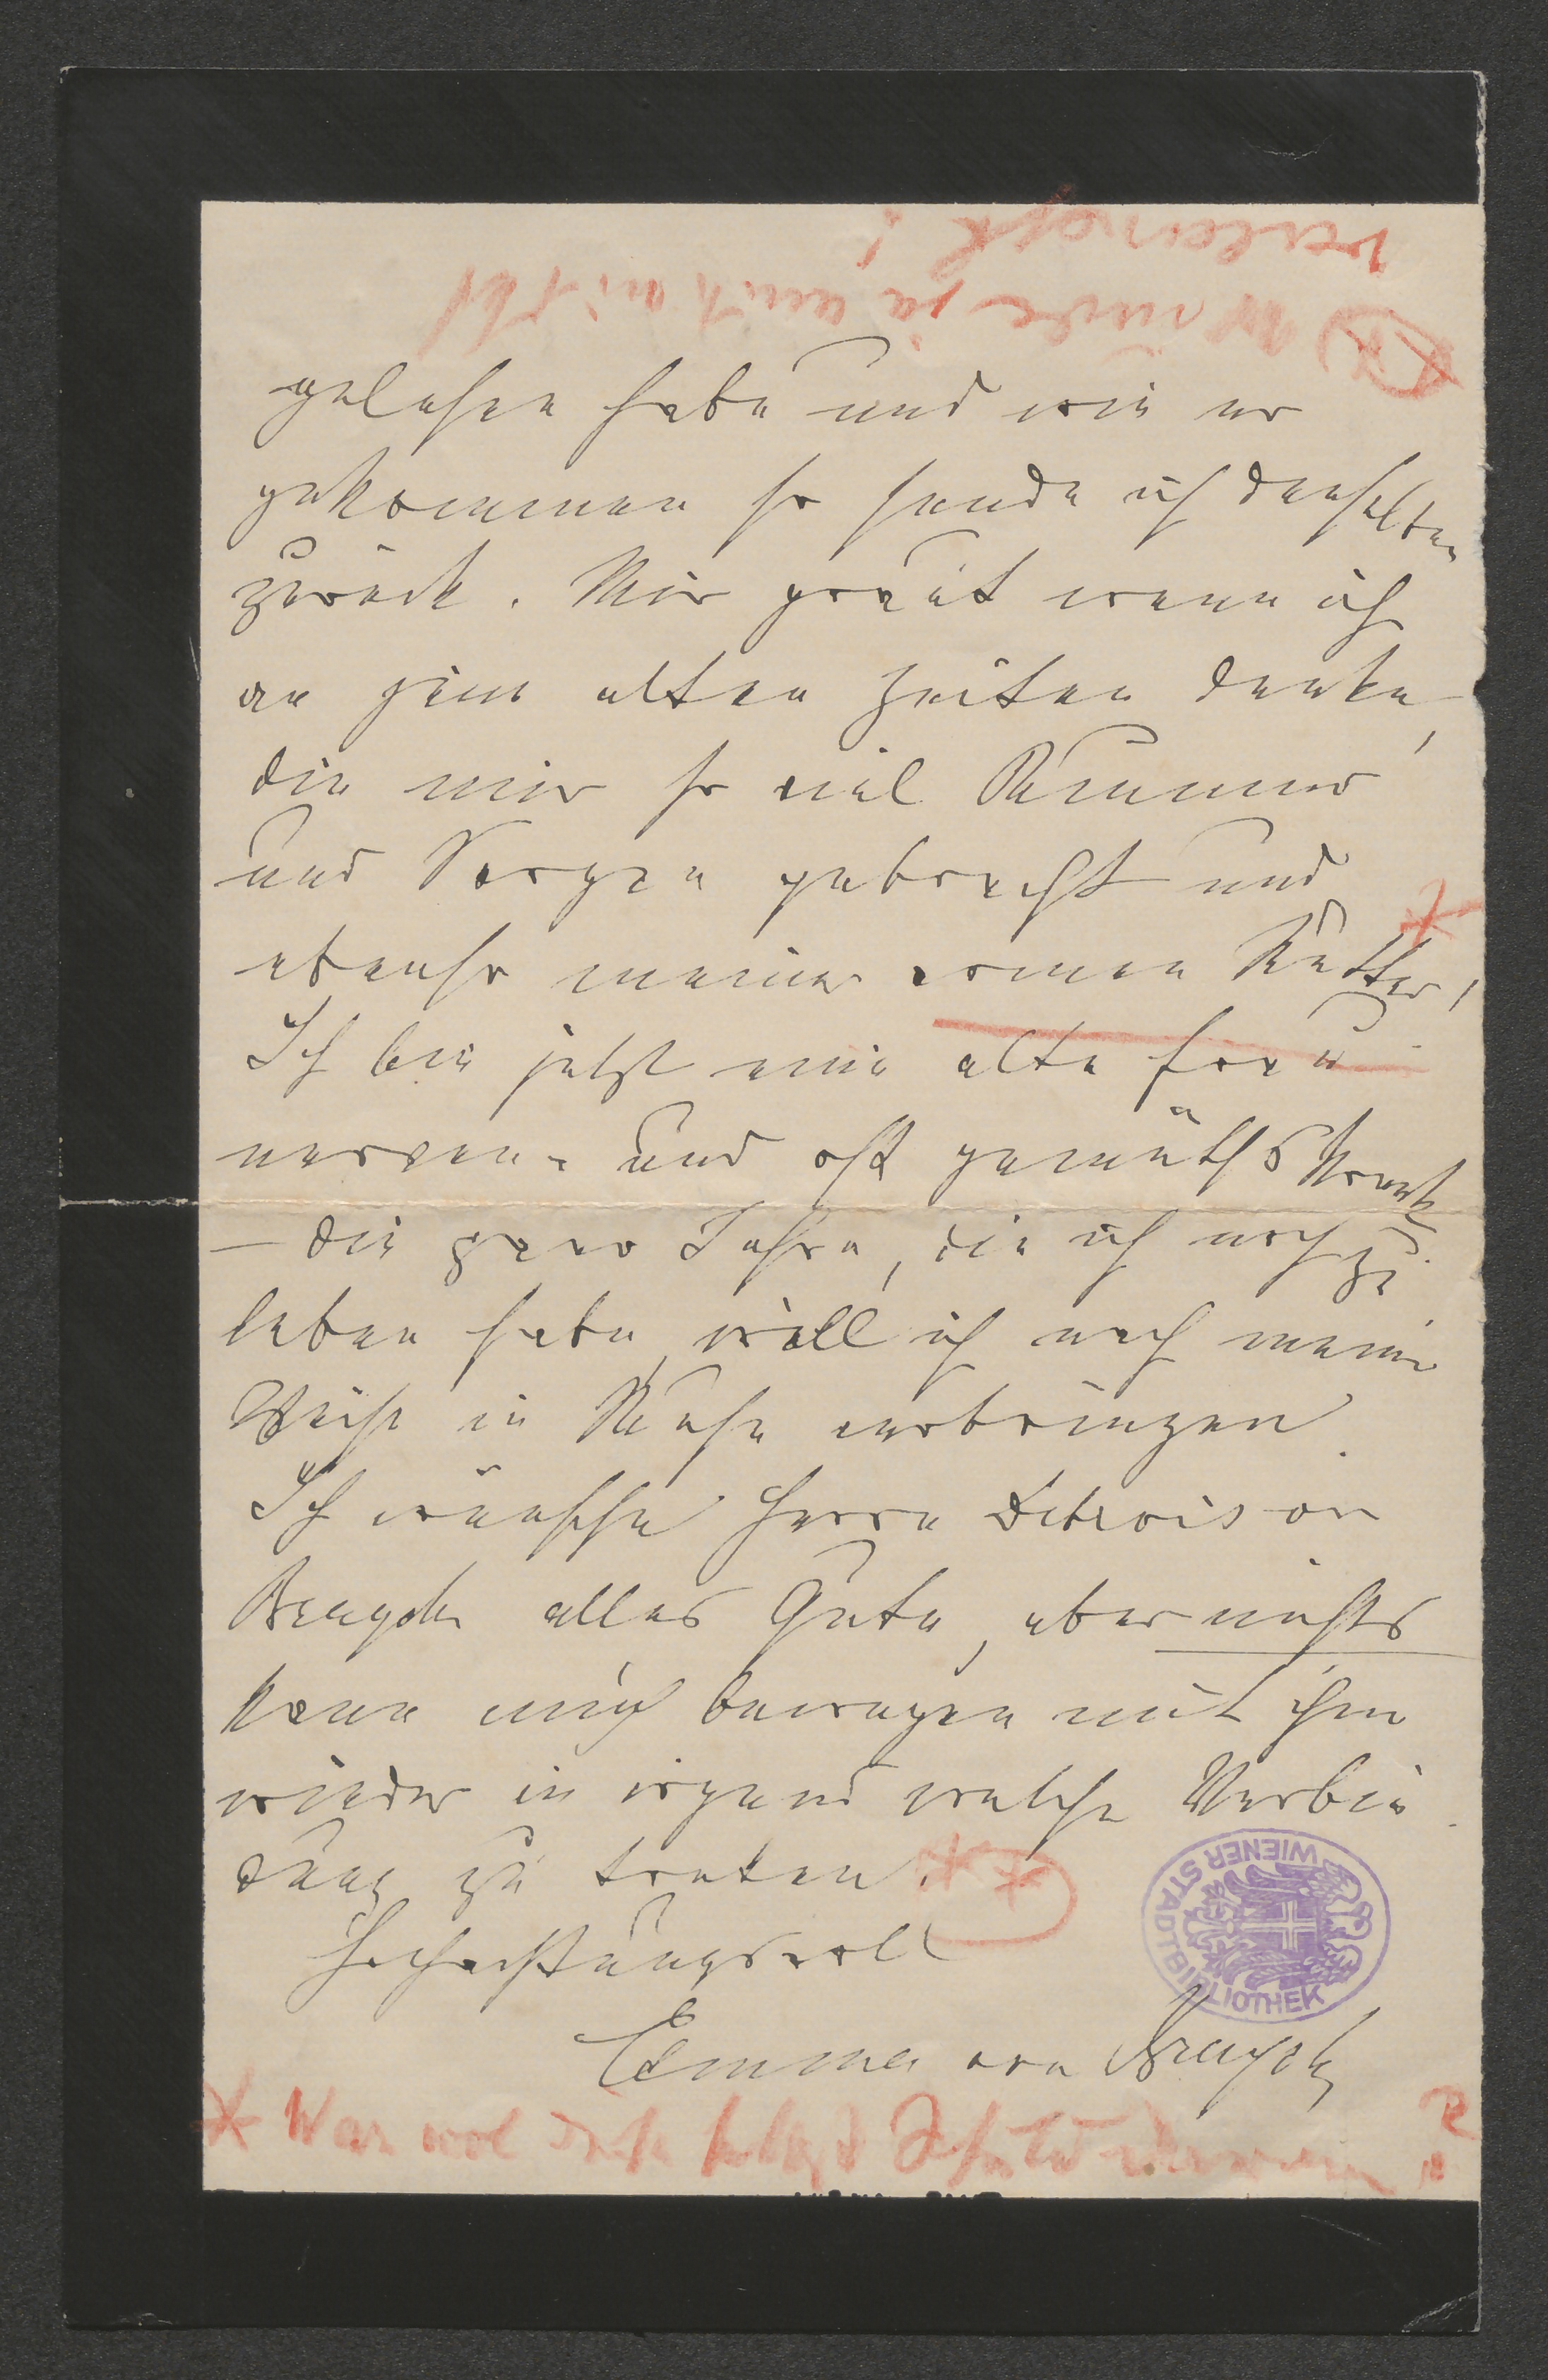 würde ja auch nicht
verlangt!
gelesen habe und wie er
gekommen so sende ich denselben
zurück. Mir graut wenn ich
an jene alten Zeiten denke,
die mir so viel Kummer
und Sorgen gebracht und
ebenso meiner armen Mutter,
Ich bin jetzt eine alte Frau
nerven- und oft gemüthskrank
– die paar Jahre, die ich noch zu
leben habe, will ich nach meiner
Weise in Ruhe verbringen.
Ich wünsche Herrn Detrois von
alles Gute, aber nichts
kann mich bewegen mit ihm
wieder in irgend welche Verbin
dung zu treten.
Hochachtungsvoll
Emma von
* War wol Schuld daran
WIENER STADTBIBLIOTHEK